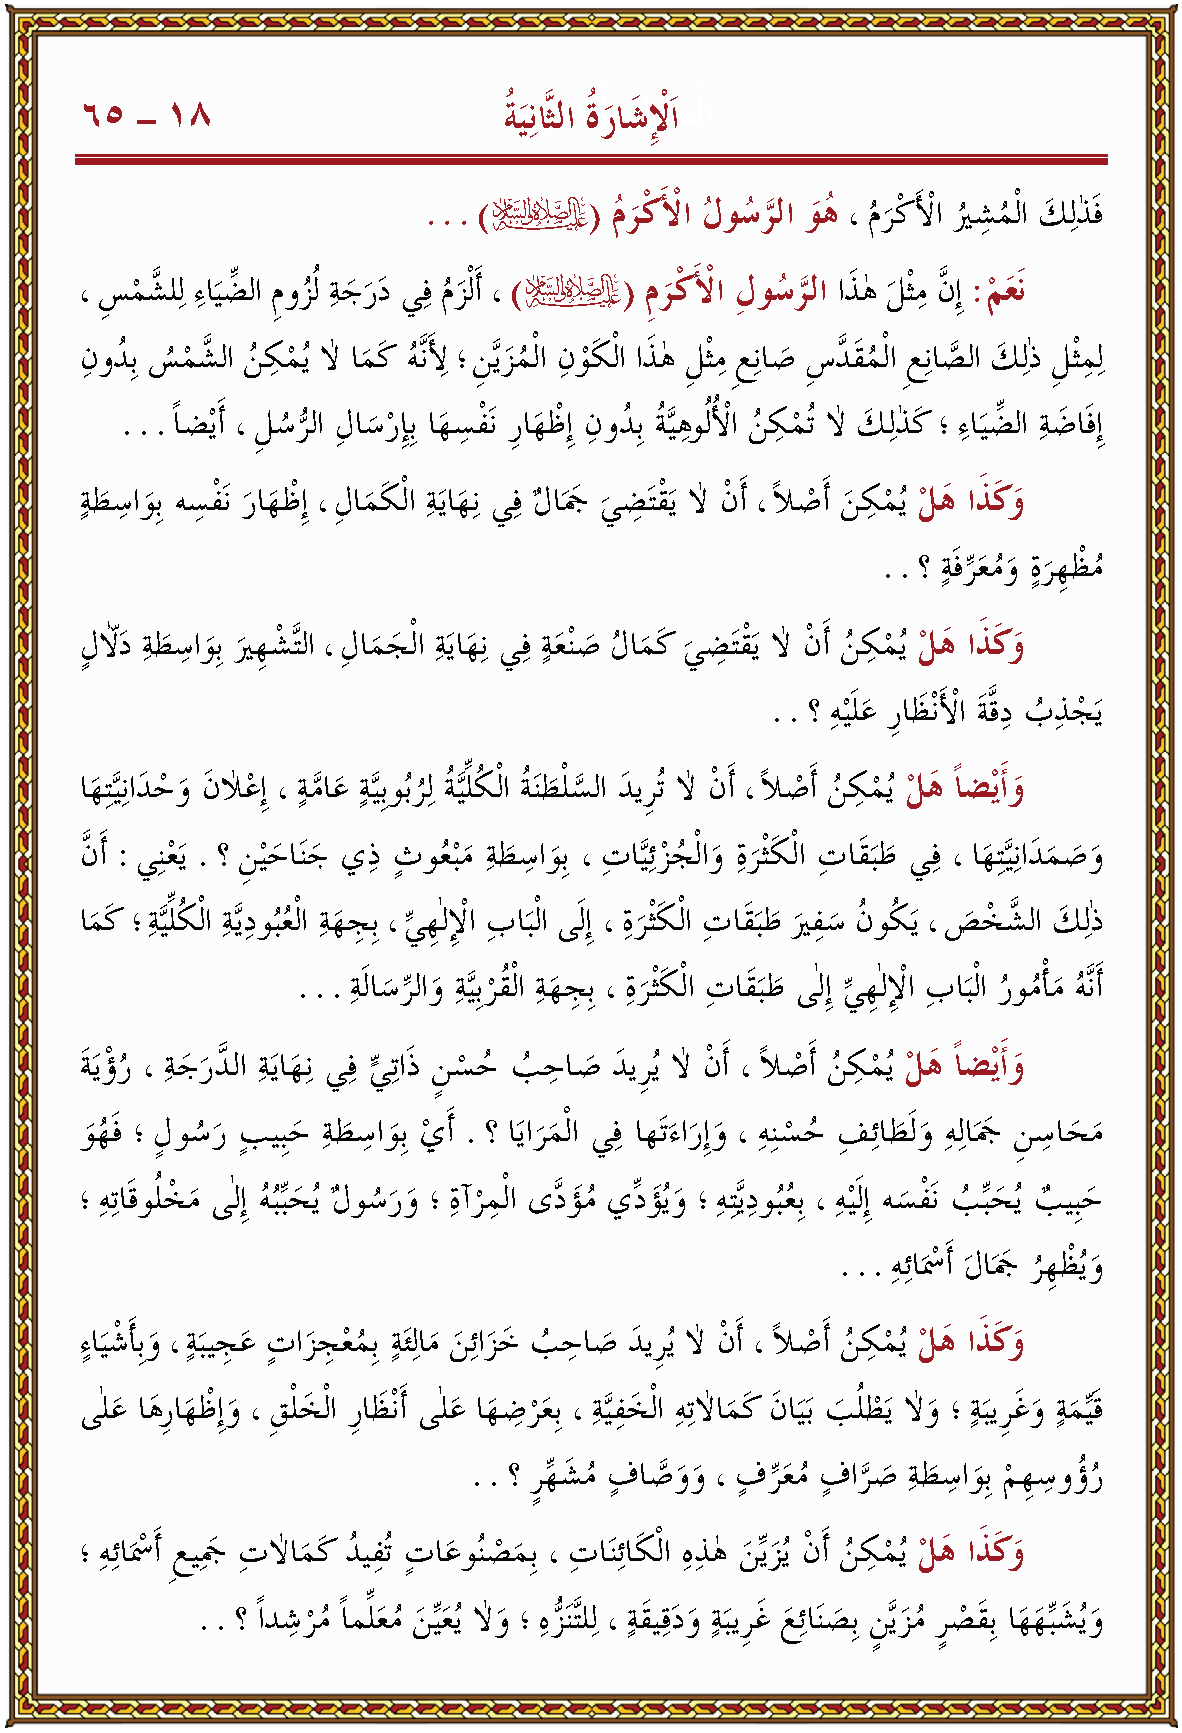 اَلْإِشَارَةُ الثَّانِيَةُ ١٨ ــ ٦٥
فَذٰلِكَ الْمُشِيرُ الْأَكْرَمُ ، هُوَ الرَّسُولُ الْأَكْرَمُ (عَلَيْهِ الصَّلَاةُ وَالسَّلَامُ) . . .
نَعَمْ : إِنَّ مِثْلَ هٰذَا الرَّسُولِ الْأَكْرَمِ (عَلَيْهِ الصَّلَاةُ وَالسَّلَامُ) ، أَلْزَمُ فِي دَرَجَةِ لُزُومِ الضِّيَاءِ لِلشَّمْسِ ،
لِمِثْلِ ذٰلِكَ الصَّانِعِ الْمُقَدَّسِ صَانِعِ مِثْلِ هٰذَا الْكَوْنِ الْمُزَيَّنِ ؛ لِأَنَّهُ كَمَا لَا يُمْكِنُ الشَّمْسُ بِدُونِ
إِفَاضَةِ الضِّيَاءِ ؛ كَذٰلِكَ لَا تُمْكِنُ الْأُلُوهِيَّةُ بِدُونِ إِظْهَارِ نَفْسِهَا بِإِرْسَالِ الرُّسُلِ ، أَيْضاً . . .
وَكَذَا هَلْ يُمْكِنَ أَصْلاً ، أَنْ لَا يَقْتَضِيَ جَمَالٌ فِي نِهَايَةِ الْكَمَالِ ، إِظْهَارَ نَفْسِهِ بِوَاسِطَةٍ
مُظْهِرَةٍ وَمُعَرِّفَةٍ ؟ . .
وَكَذَا هَلْ يُمْكِنُ أَنْ لَا يَقْتَضِيَ كَمَالُ صَنْعَةٍ فِي نِهَايَةِ الْجَمَالِ ، التَّشْهِيرَ بِوَاسِطَةِ دَلَّالٍ
يَجْذِبُ دِقَّةَ الْأَنْظَارِ عَلَيْهِ ؟ . .
وَأَيْضاً هَلْ يُمْكِنُ أَصْلاً ، أَنْ لَا تُرِيدَ السَّلْطَنَةُ الْكُلِّيَّةُ لِرُبُوبِيَّةٍ عَامَّةٍ ، إِعْلَانَ وَحْدَانِيَّتِهَا
وَصَمَدَانِيَّتِهَا ، فِي طَبَقَاتِ الْكَثْرَةِ وَالْجُزْئِيَّاتِ ، بِوَاسِطَةِ مَبْعُوثٍ ذِي جَنَاحَيْنِ ؟ . يَعْنِي : أَنَّ
ذٰلِكَ الشَّخْصَ ، يَكُونُ سَفِيرَ طَبَقَاتِ الْكَثْرَةِ ، إِلَى الْبَابِ الْإِلٰهِيِّ ، بِجِهَةِ الْعُبُودِيَّةِ الْكُلِّيَّةِ ؛ كَمَا
أَنَّهُ مَأْمُورُ الْبَابِ الْإِلٰهِيِّ إِلٰى طَبَقَاتِ الْكَثْرَةِ ، بِجِهَةِ الْقُرْبِيَّةِ وَالرِّسَالَةِ . . .
وَأَيْضاً هَلْ يُمْكِنُ أَصْلاً ، أَنْ لَا يُرِيدَ صَاحِبُ حُسْنٍ ذَاتِيٍّ فِي نِهَايَةِ الدَّرَجَةِ ، رُؤْيَةَ
مَحَاسِنِ جَمَالِهِ وَلَطَائِفِ حُسْنِهِ ، وَإِرَاءَتَهَا فِي الْمَرَايَا ؟ . أَيْ بِوَاسِطَةِ حَبِيبٍ رَسُولٍ ؛ فَهُوَ
حَبِيبٌ يُحَبِّبُ نَفْسَهُ إِلَيْهِ ، بِعُبُودِيَّتِهِ ؛ وَيُؤَدِّي مُؤَدَّى الْمِرْآةِ ؛ وَرَسُولٌ يُحَبِّبُهُ إِلٰى مَخْلُوقَاتِهِ ؛
وَيُظْهِرُ جَمَالَ أَسْمَائِهِ . . .
وَكَذَا هَلْ يُمْكِنُ أَصْلاً ، أَنْ لَا يُرِيدَ صَاحِبُ خَزَائِنَ مَالِئَةٍ بِمُعْجِزَاتٍ عَجِيبَةٍ ، وَبِأَشْيَاءٍ
قَيِّمَةٍ وَغَرِيبَةٍ ؛ وَلَا يَطْلُبَ بَيَانَ كَمَالَاتِهِ الْخَفِيَّةِ ، بِعَرْضِهَا عَلٰى أَنْظَارِ الْخَلْقِ ، وَإِظْهَارِهَا عَلٰى
رُؤُوسِهِمْ بِوَاسِطَةِ صَرَّافٍ مُعَرِّفٍ ، وَوَصَّافٍ مُشَهِّرٍ ؟ . .
وَكَذَا هَلْ يُمْكِنُ أَنْ يُزَيِّنَ هٰذِهِ الْكَائِنَاتِ ، بِمَصْنُوعَاتٍ تُفِيدُ كَمَالَاتِ جَمِيعِ أَسْمَائِهِ ؛
وَيُشَبِّهَهَا بِقَصْرٍ مُزَيَّنٍ بِصَنَائِعَ غَرِيبَةٍ وَدَقِيقَةٍ ، لِلتَّنَزُّهِ ؛ وَلَا يُعَيِّنَ مُعَلِّماً مُرْشِداً ؟ . .